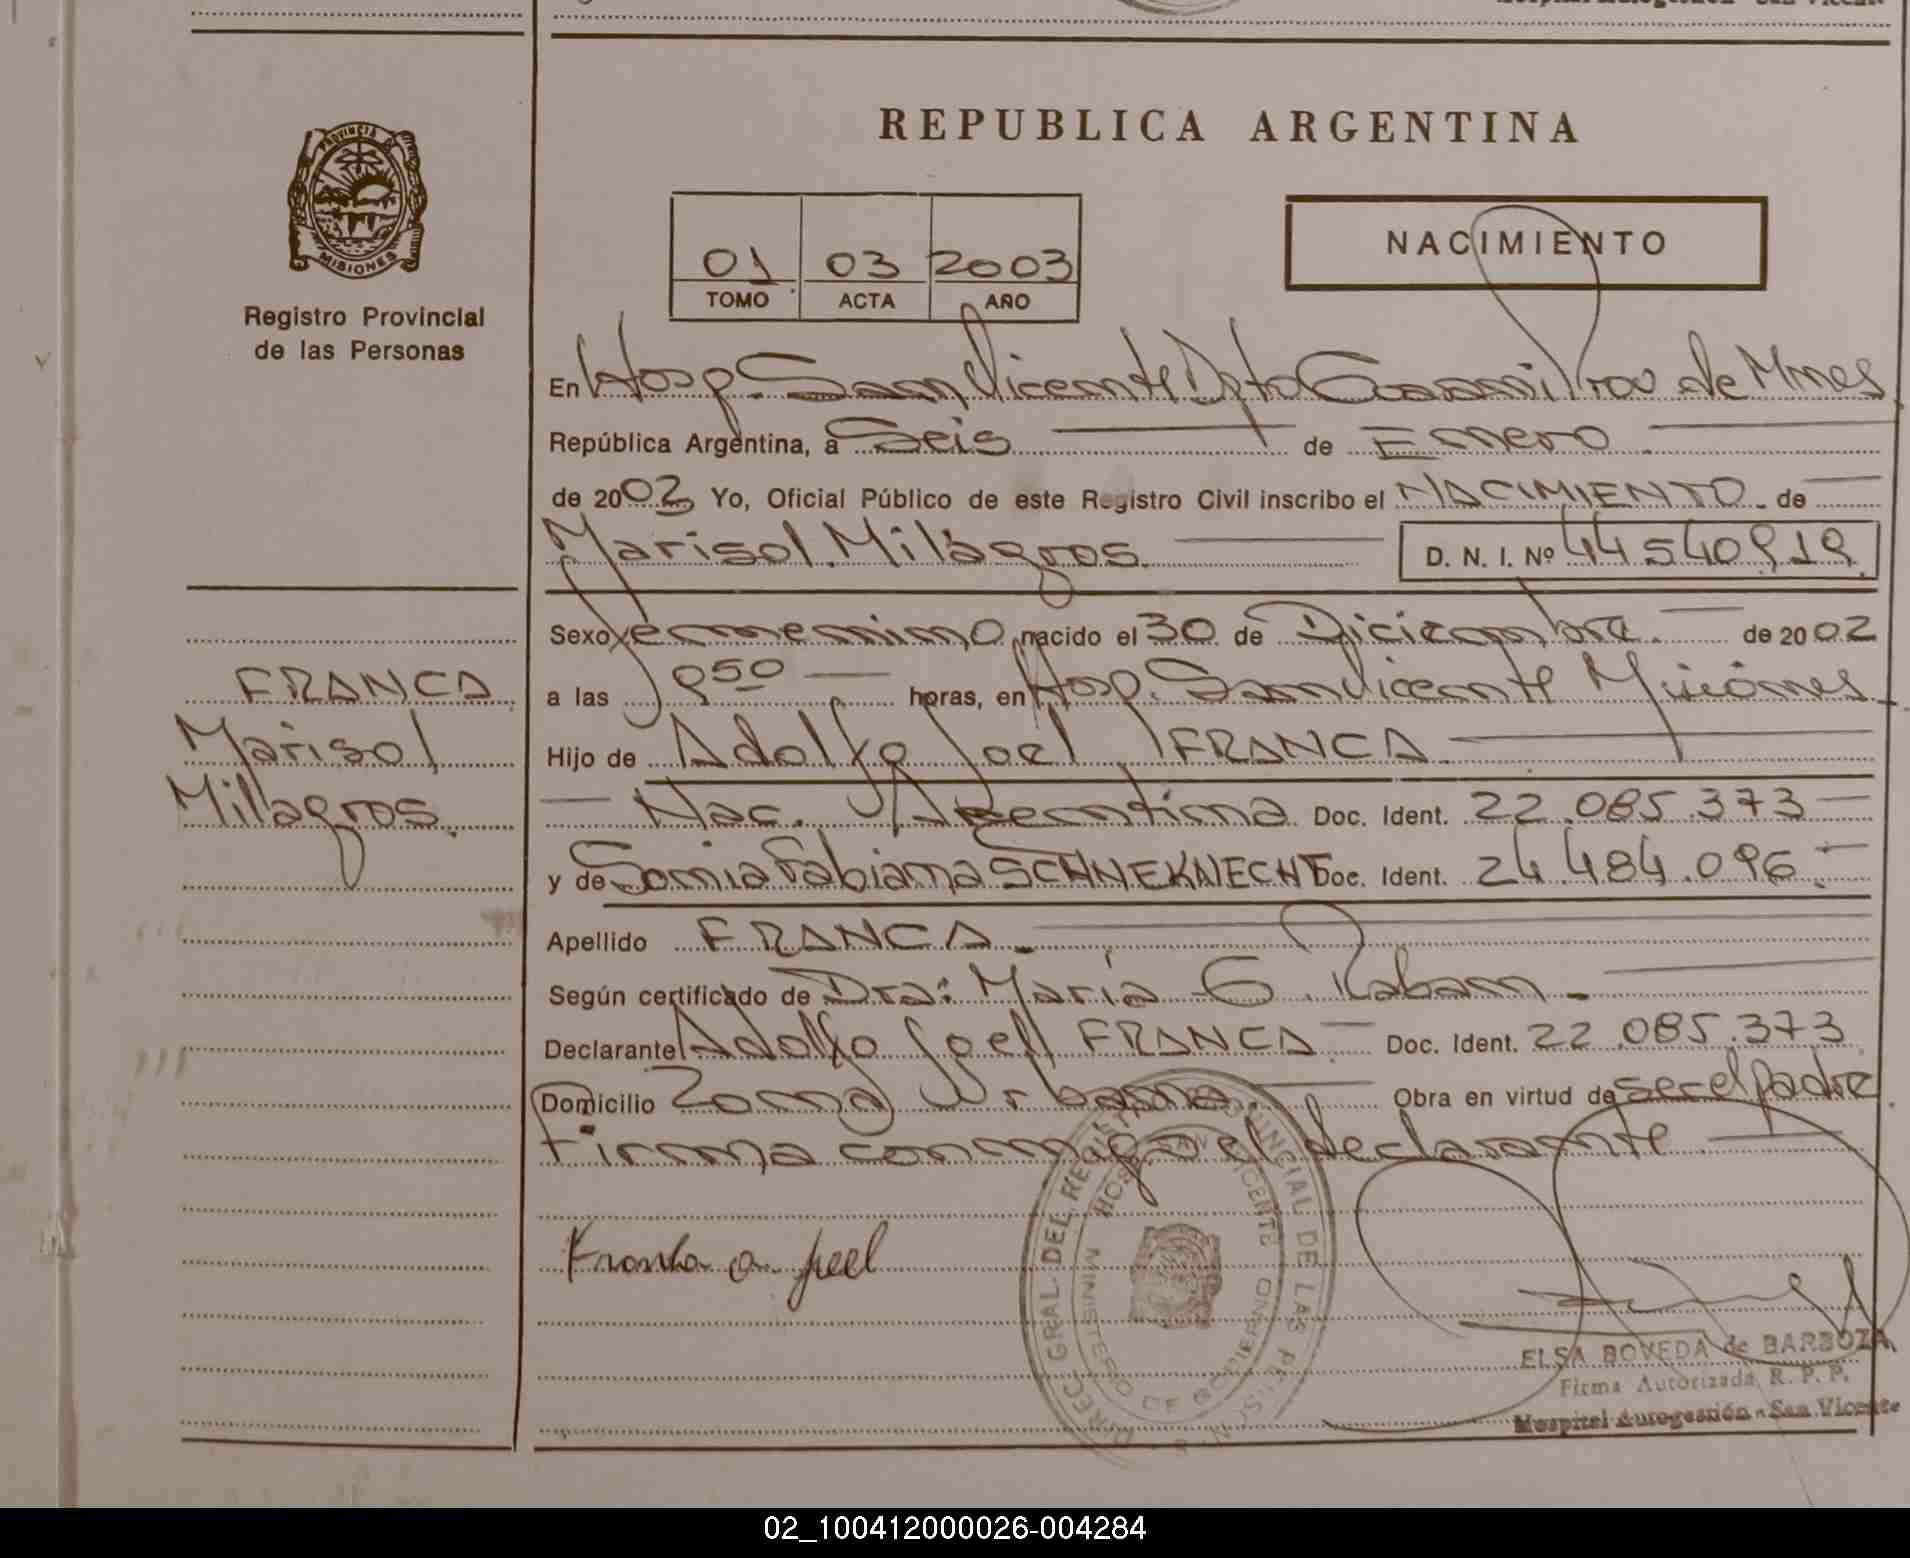 REPUBLICA ARGENTINA
PROVINCIA DE
MISIONES
Registro Provincial
de las Personas
01 03 2003
TOMO ACTA AÑO
NACIMIENTO
En Hosp. San Vicente Dpto Guaraní Prov de Mnes
República Argentina, a Seis de Enero
de 2003 Yo, Oficial Público de este Registro Civil inscribo el NACIMIENTO de
Marisol Milagros D. N. I. Nº 44540919
Sexo femenino nacido el 30 de Diciembre de 2002
a las 950 horas, en Hosp. San Vicente Misiones
FRANCA
Marisol
Milagros.
Hijo de Adolfo Joel FRANCA
Nac. Argentina Doc. Ident. 22.085.373
y de Sonia Fabiana SCHNEKNECHT Doc. Ident. 24.484.096
Apellido FRANCA
Según certificado de Dra: María G. Raban
Declarante Adolfo Joel FRANCA Doc. Ident. 22.085.373
Domicilio Zona Urbana Obra en virtud de ser el padre
Firma conmigo el declarante
DIREC. GRAL. DEL REGISTRO PROVINCIAL DE LAS PERSONAS
HOSP. SAN VICENTE
MINISTERIO DE GOBIERNO
ELSA BOVEDA de BARBOZA
Firma Autorizada R. P. P.
Hospital Autogestión - San Vicente
02_100412000026-004284